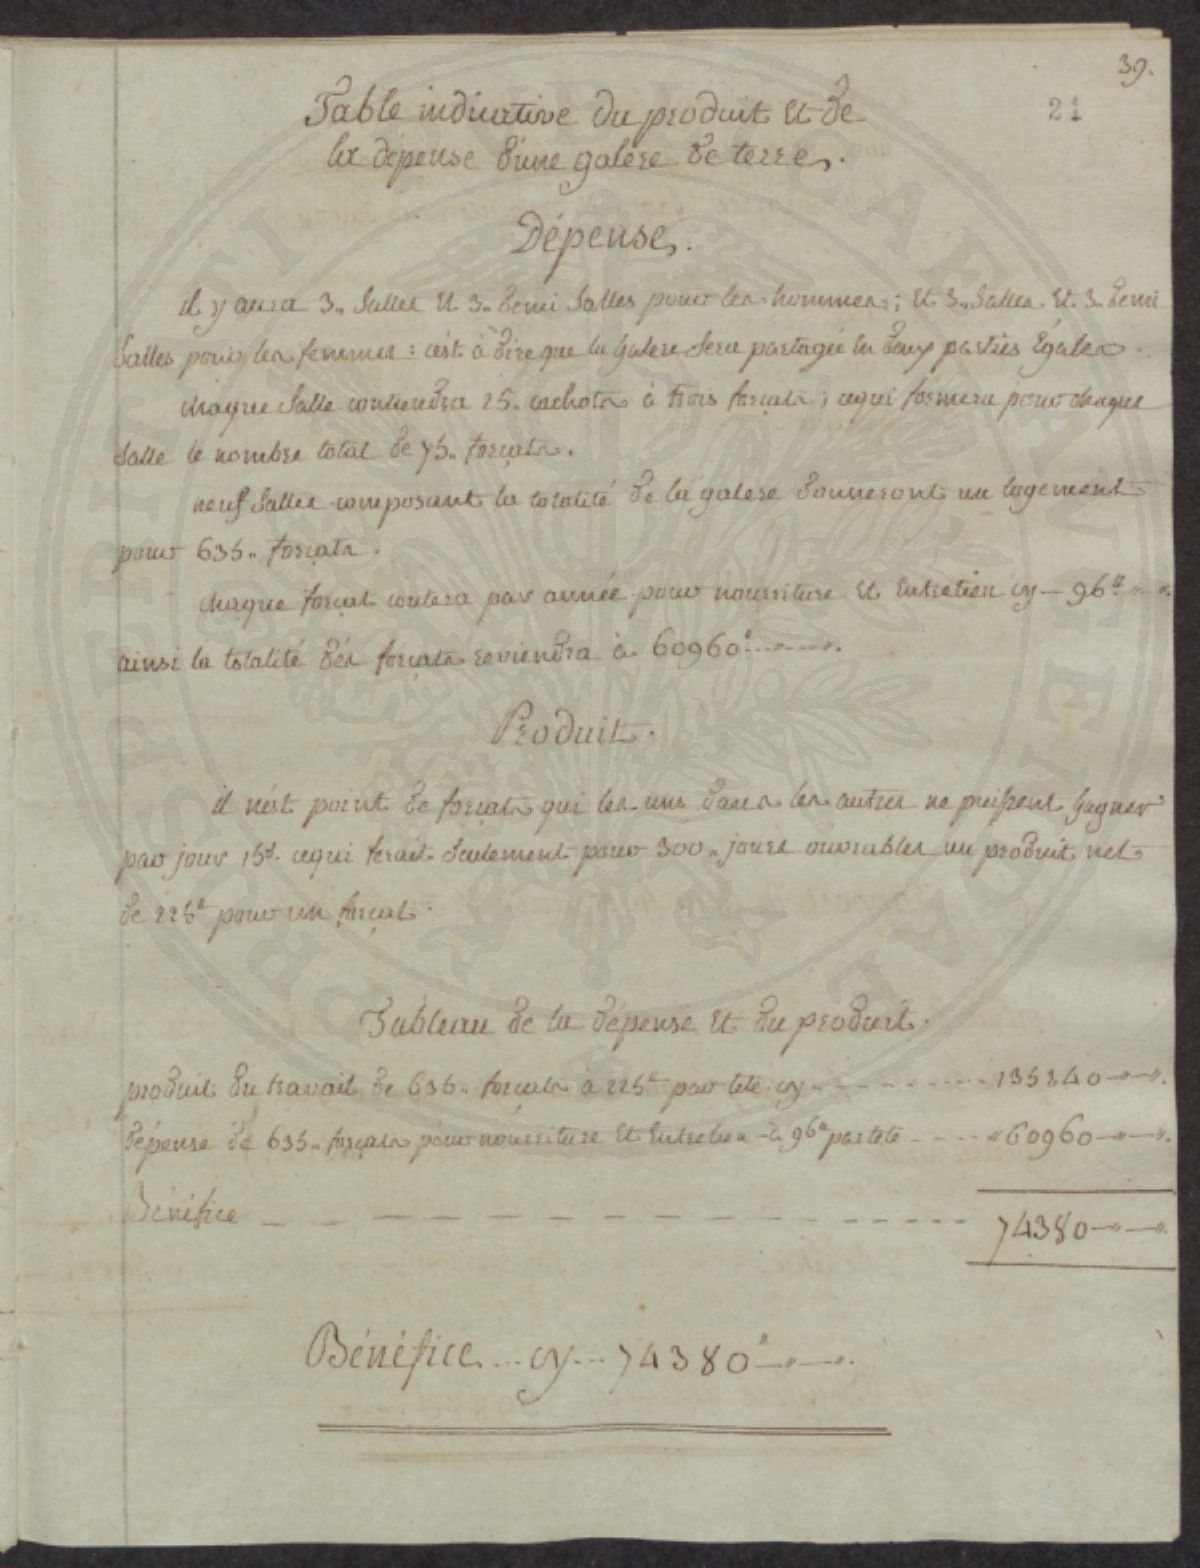 39.
21
Table indicative du produit et de
la dépense d'une galère de terre.
Dépense.
il y aura 3. Salles et 3. demi Salles pour les hommes; et 3. Salles et 3 demi
Salles pour les femmes: c'est à dire que la galere sera partagée en deux parties égales.
chaque Salle contiendra 25. cachots à trois forçats; cequi formera pour chaque
Salle le nombre total de 75. forçats.
neuf Salles composant la totalité de la galere donneront un logement
pour 635. forçats.
chaque forçat coutera par année pour nourriture et entretien cy - 96ᵗᵗ
ainsi la totalité des forçats reviendra à 60960ᵗᵗ
Produit.
il n'est point de forçats qui les uns dans les autres ne puissent gagner
par jour 15ˢ. cequi ferait seulement pour 300. jours ouvrables un produit net
de 225ᵗᵗ pour un forçat.
Tableau de la dépense et du produit.
produit du travail de 635. forçats à 225ᵗᵗ par tête cy - - - - - 135340
dépense de 635. forçats pour nourriture et entretien à 96ᵗᵗ par tete - - - - 60960
Bénéfice - - - - - - - 74380
Bénéfice ... cy ... 74380ᵗᵗ